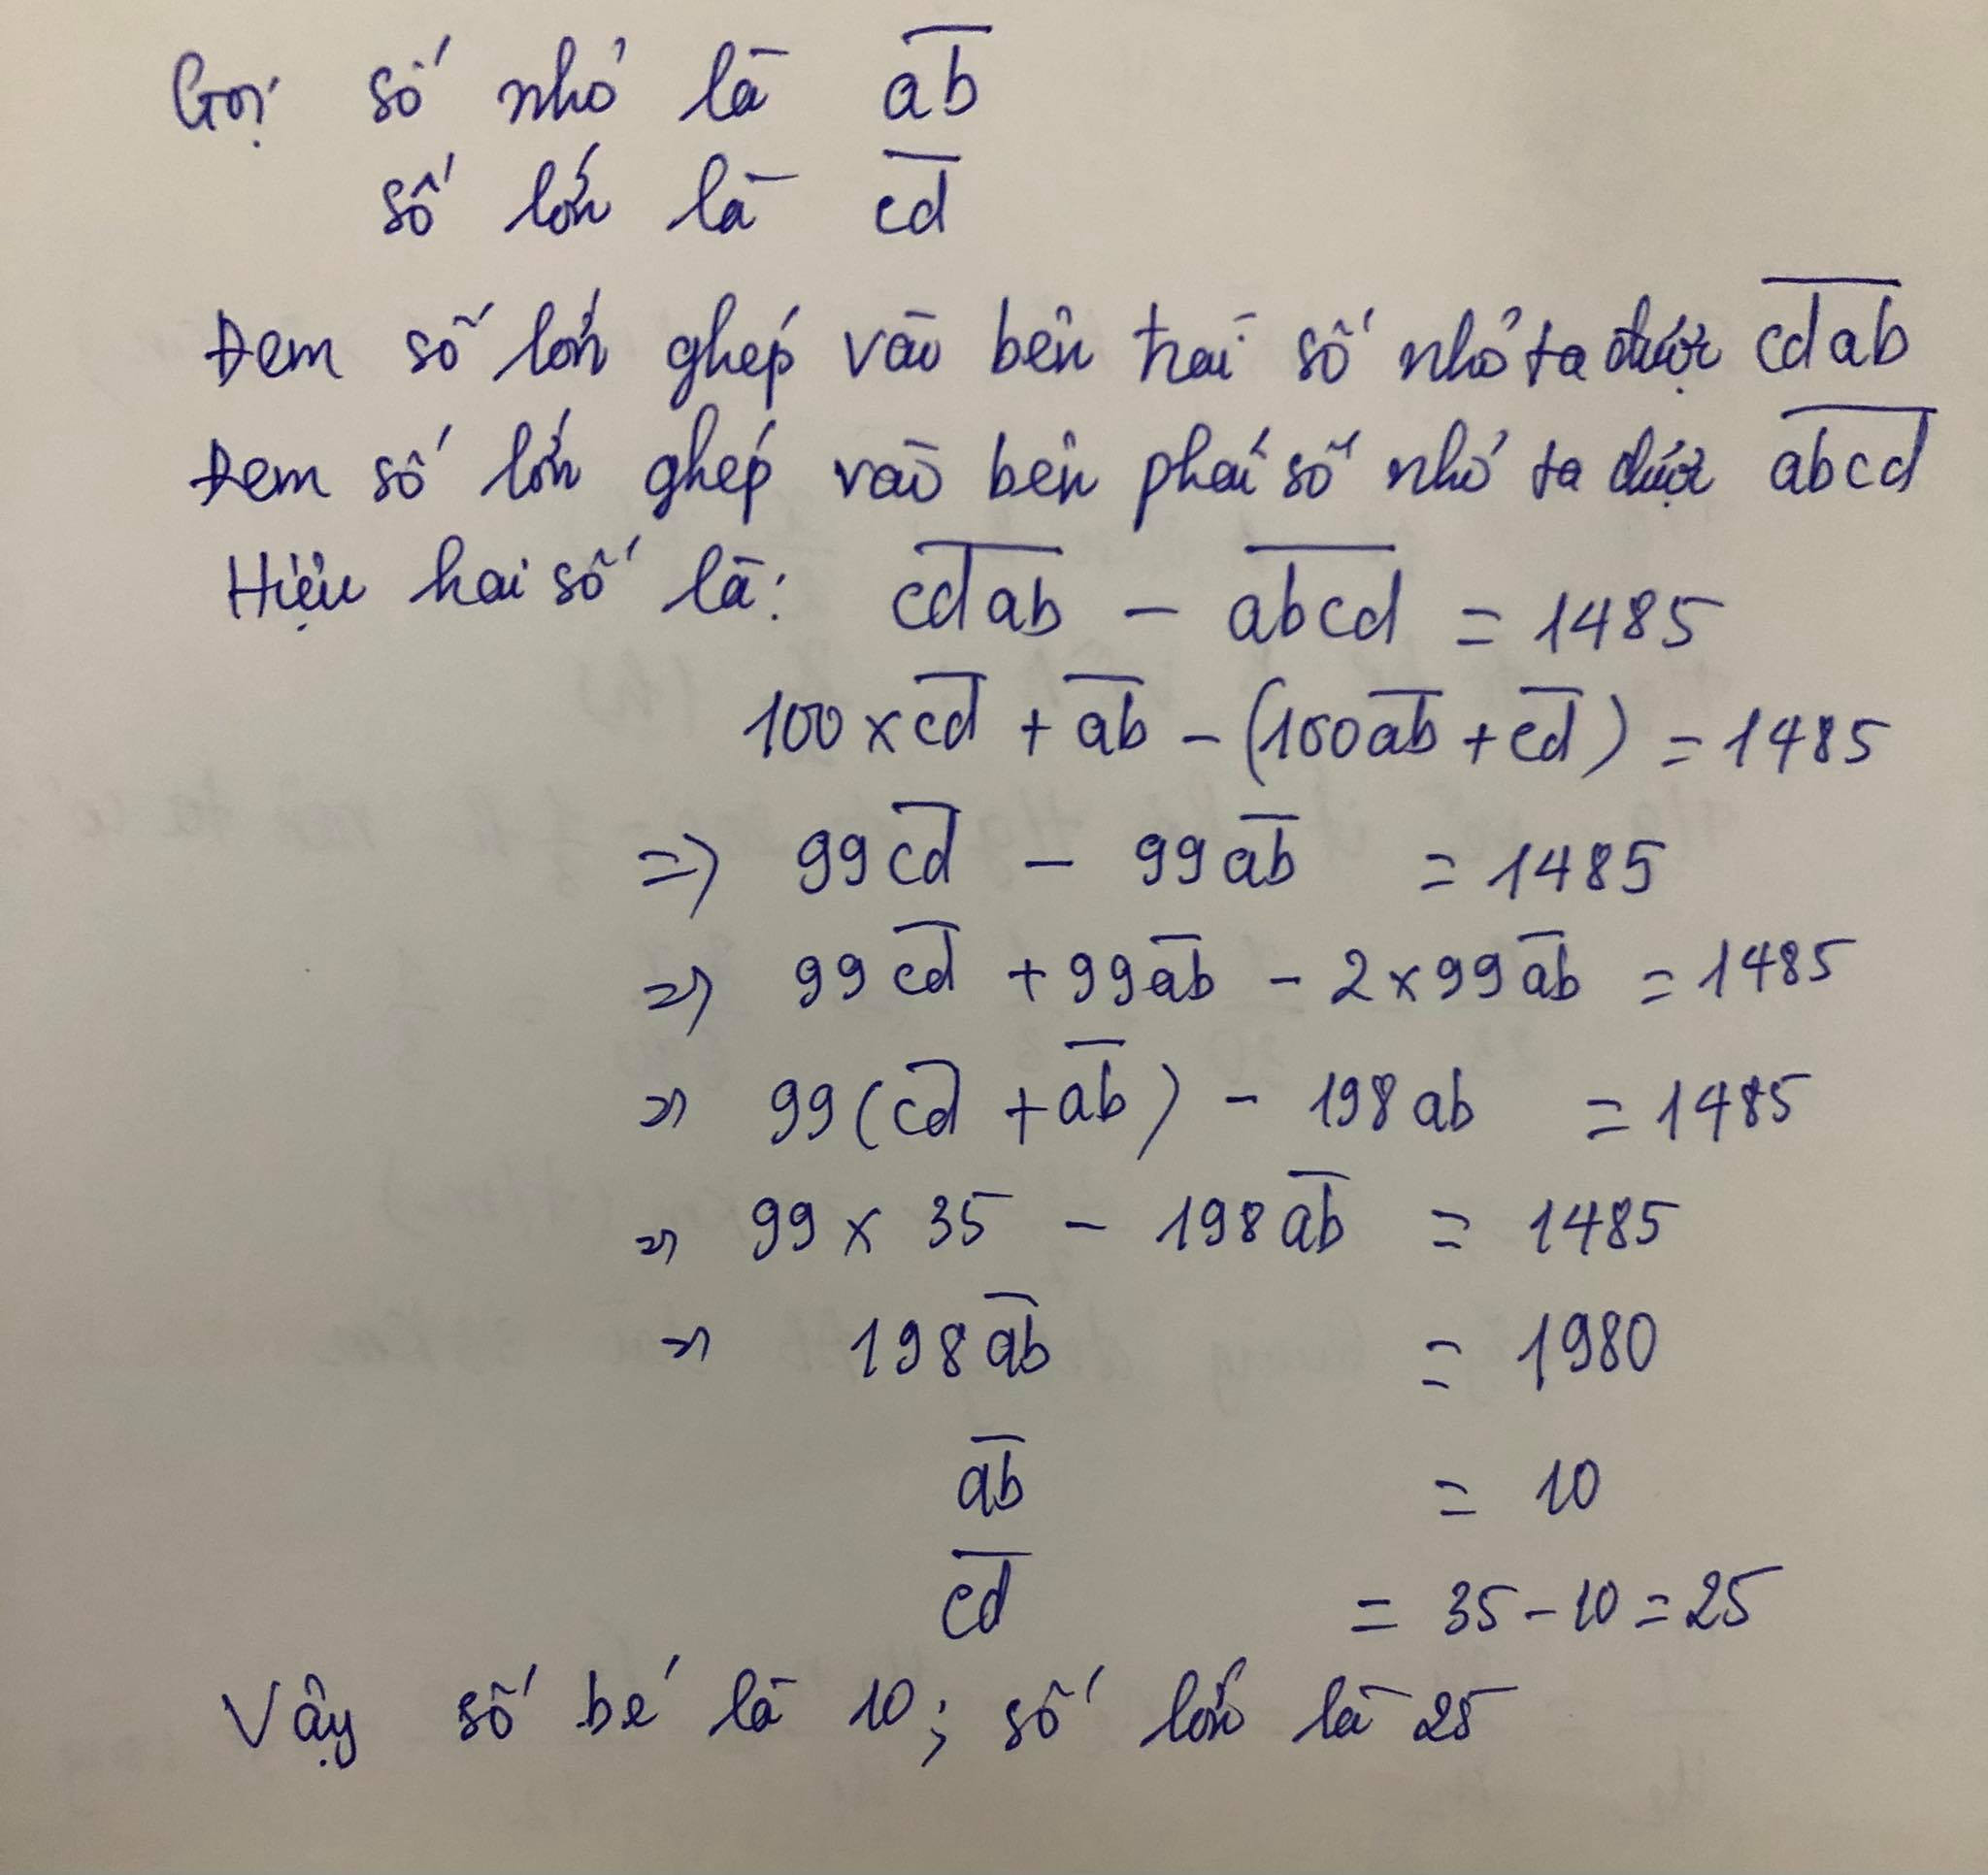 Gọi số nhỏ là ab
số lớn là cd
Đem số lớn ghép vào bên trái số nhỏ ta được cdab
Đem số lớn ghép vào bên phải số nhỏ ta được abcd
Hiệu hai số là: cdab - abcd = 1485
100 x cd + ab - (100ab + cd) = 1485
=> 99cd - 99ab = 1485
=> 99cd + 99ab - 2 x 99ab = 1485
=> 99(cd + ab) - 198ab = 1485
=> 99 x 35 - 198ab = 1485
=> 198ab = 1980
ab = 10
cd = 35 - 10 = 25
Vậy số bé là 10; số lớn là 25